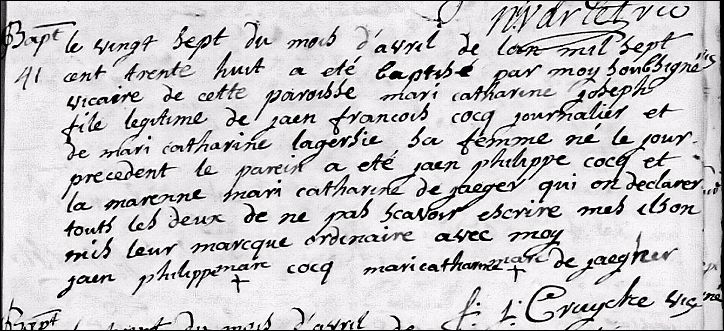 Bapt le vingt sept du mois d'avril de lan mil sept
41 cent trente huit a eté baptisé par moy soubsigné
vicaire de cette paroisse mari catharine joseph
file legitime de jaen francois cocq journalier et
de mari catharine lagersie sa femme né le jour
precedent le parein a eté jaen philippe cocq et
la marenne mari catharine de jaeger qui on declarer
touts les deux de ne pas scavoir escrire mes ils on
mis leur marcque ordinaire avec moy
jaen philippe marc + cocq mari catharine marc + de jaegher
Bapt du mois d'avril de